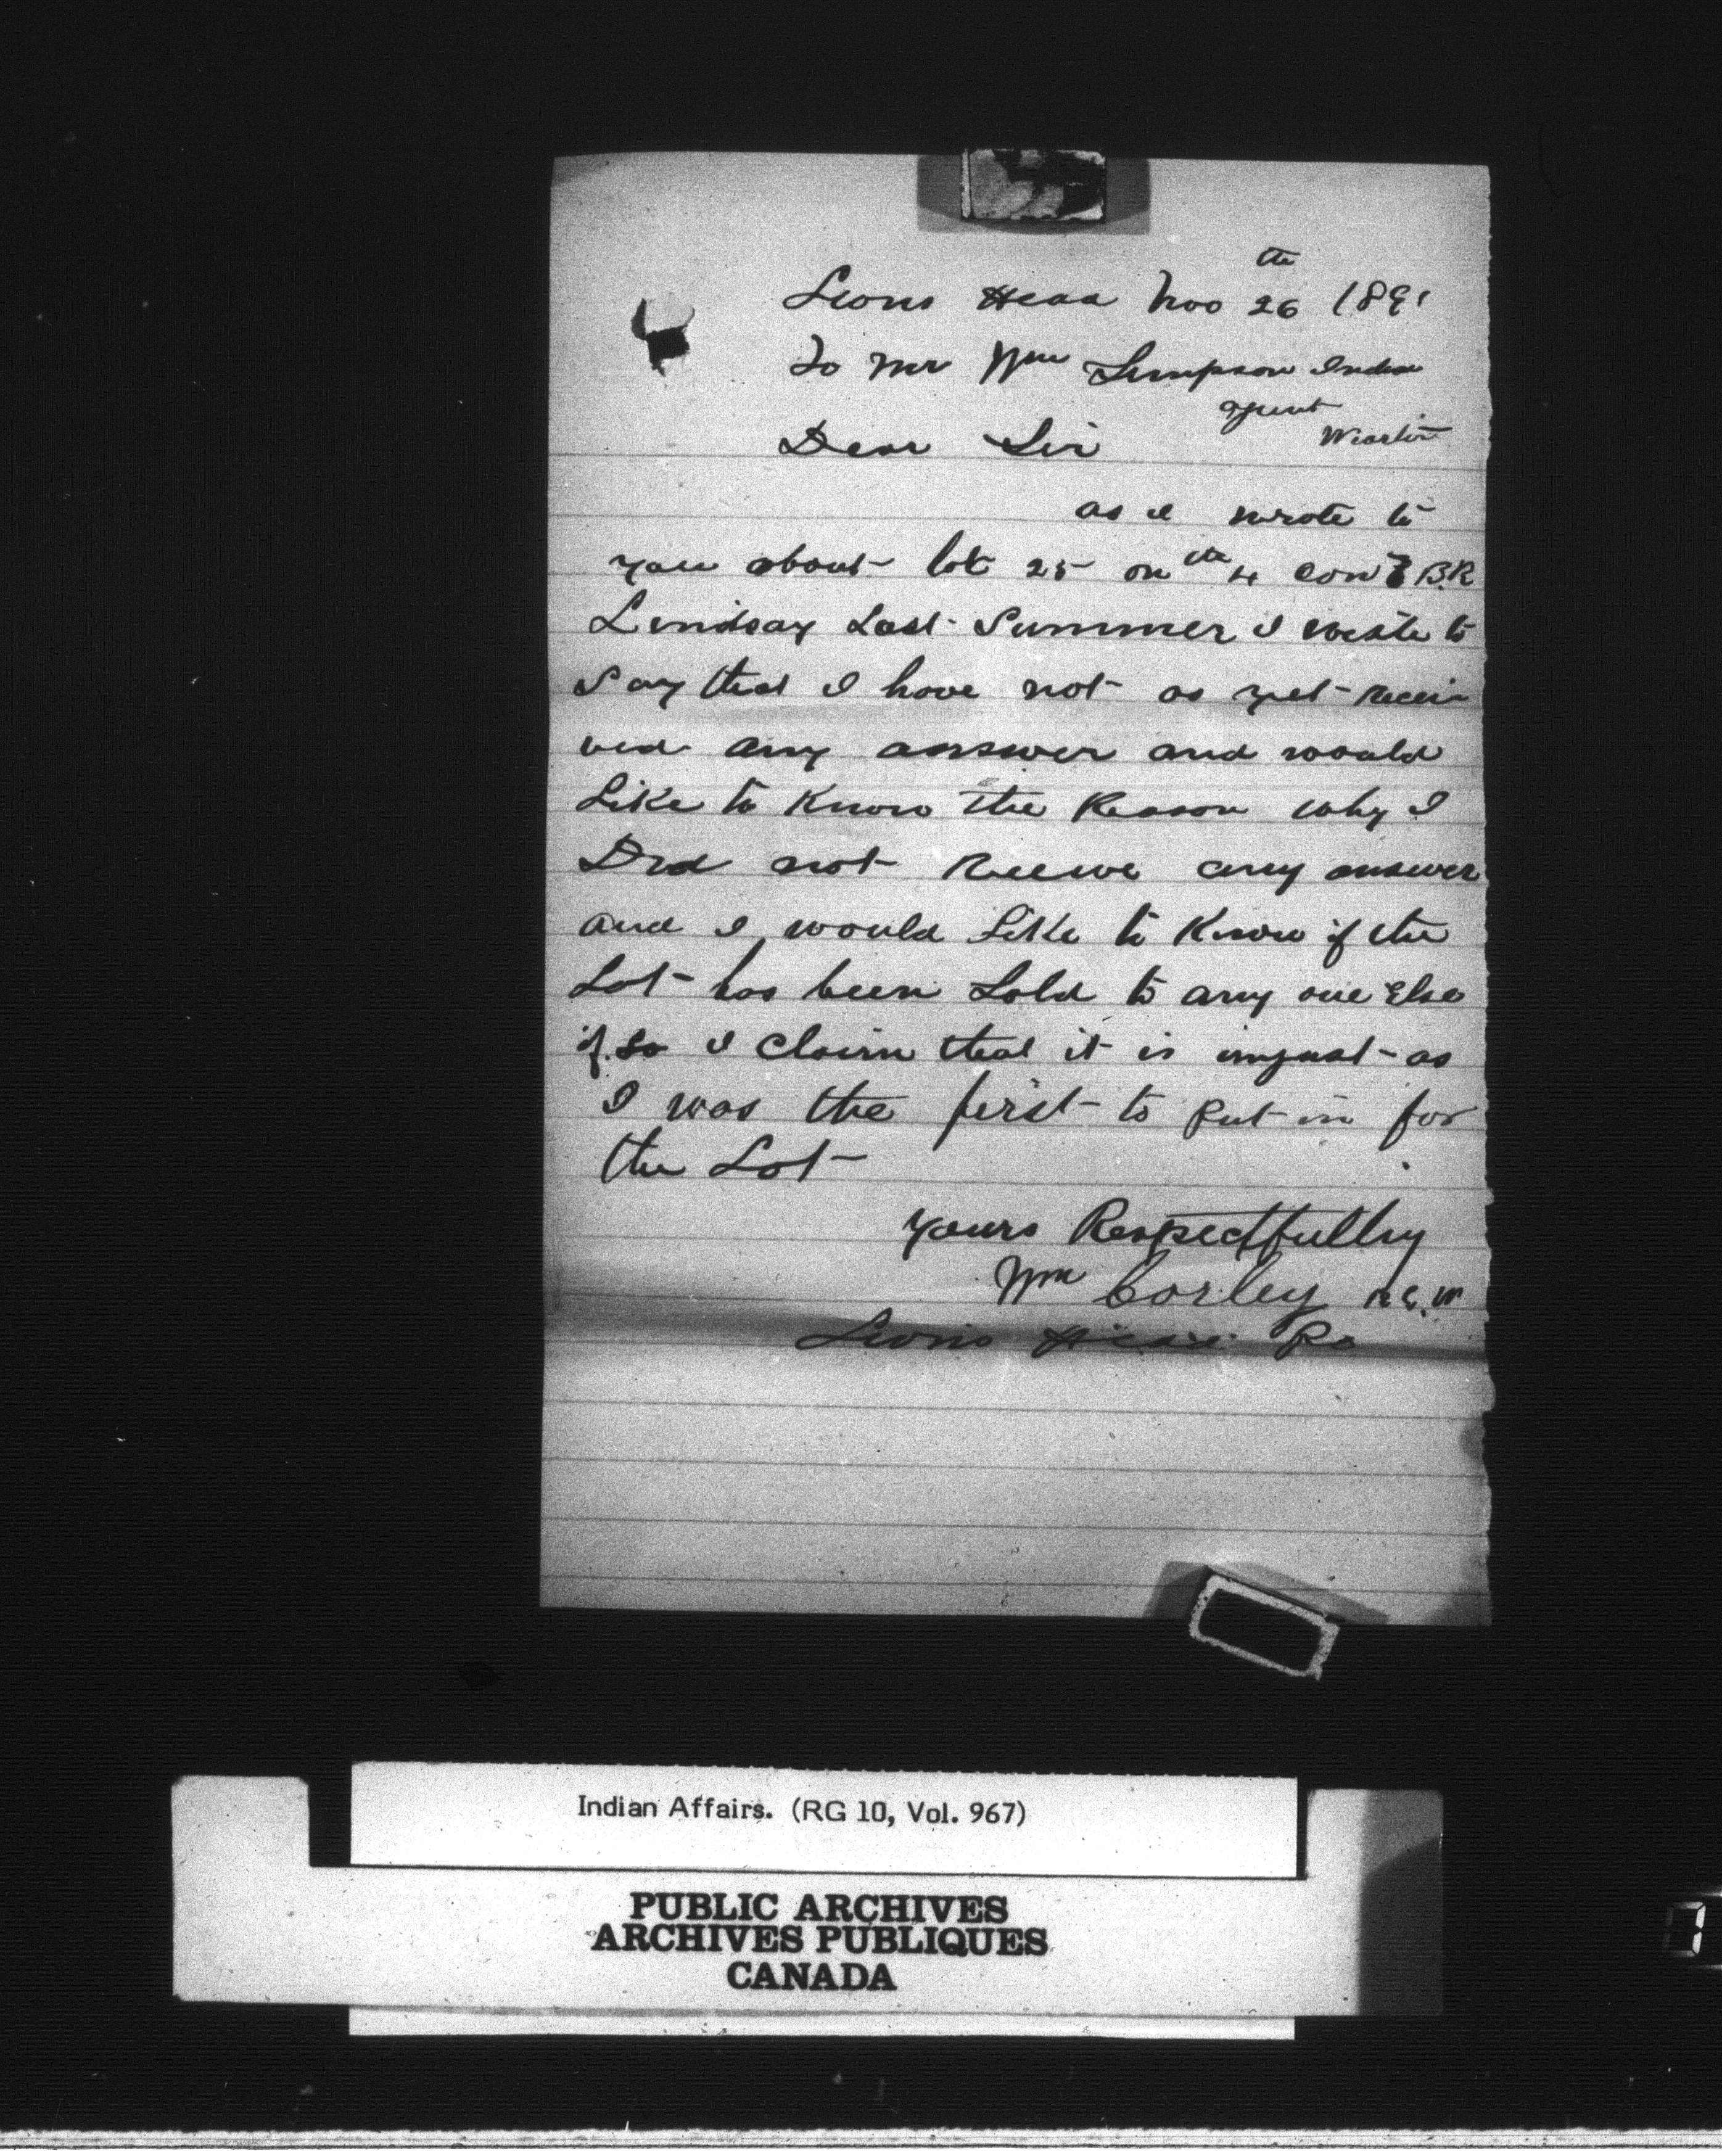 Lions Head Nov 26th 1891
To Mr Wm Simpson Indian
agent
Wiarton
Dear Sir
as I wrote to
you about lot 25 on the 4 con E BR
Lindsay Last Summer I write to
Say that I have not as yet recei
ved any answer and would
Like to Know the Reason why I
Did not Receive any answer
and I would Like to Know if the
Lot has been Sold to any one Else
if so I Claim that it is unjust as
I was the first to put in for
the Lot
Yours Respectfully
Wm Corley
Lions Head Po
Indian Affairs. (RG 10, Vol. 967)
PUBLIC ARCHIVES
ARCHIVES PUBLIQUES
CANADA